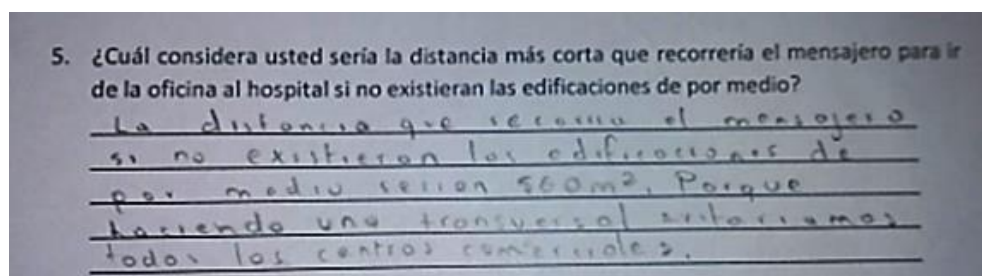 5. ¿Cuál considera usted sería la distancia más corta que recorrería el mensajero para ir
de la oficina al hospital si no existieran las edificaciones de por medio?
La distancia que recorria el mensajero
si no existieran las edificaciones de
por medio serian 560m², Porque
haciendo una transversal evitariamos
todos los centros comerciales.